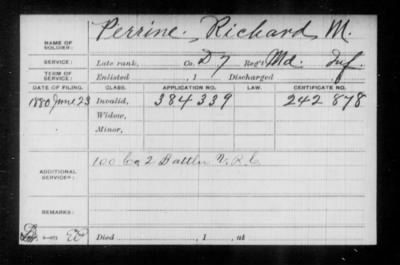 NAME OF SOLDIER: Perrine, Richard M.
SERVICE: Late rank, Co. D 7 Reg't Md. Inf.
TERM OF SERVICE: Enlisted , 1 Discharged
DATE OF FILING. CLASS. APPLICATION NO. LAW. CERTIFICATE NO.
1880 June 23 Invalid, 384339 242878
Widow,
Minor,
ADDITIONAL SERVICE: 100 Co 2 Battln V.R.C
REMARKS:
Died , 1 , at